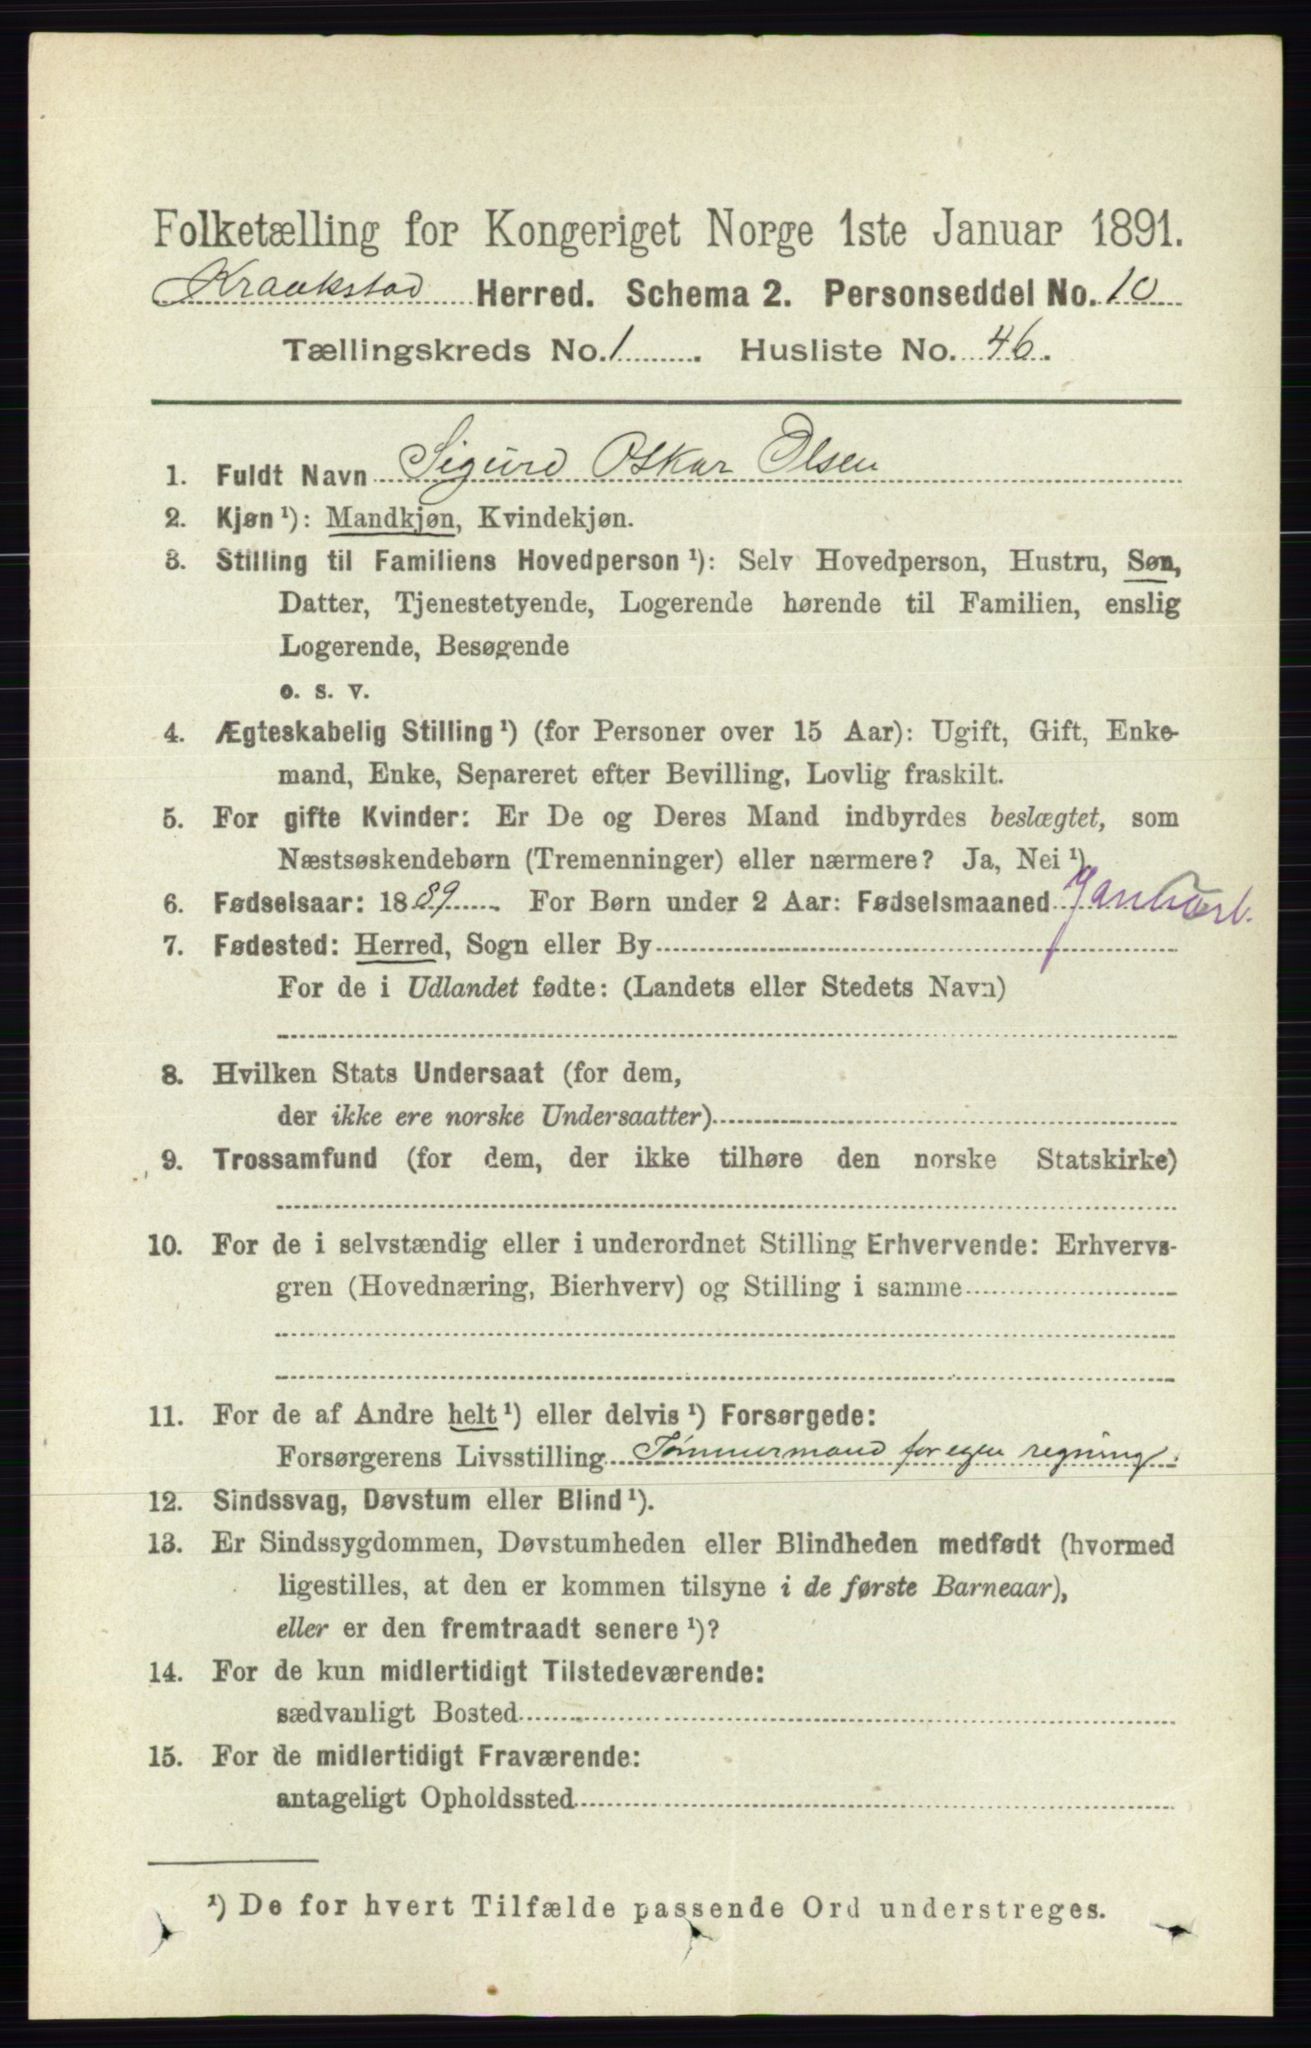 Folketælling for Kongeriget Norge 1ste Januar 1891.
Kraakstad Herred. Schema 2. Personseddel No. 10
Tællingskreds No. 1. Husliste No. 46.
1. Fuldt Navn Sigurd Oskar Olsen
2. Kjøn ¹): Mandkjøn, Kvindekjøn.
3. Stilling til Familiens Hovedperson ¹): Selv Hovedperson, Hustru, Søn,
Datter, Tjenestetyende, Logerende hørende til Familien, enslig
Logerende, Besøgende
o. s. v.
4. Ægteskabelig Stilling ¹) (for Personer over 15 Aar): Ugift, Gift, Enke-
mand, Enke, Separeret efter Bevilling, Lovlig fraskilt.
5. For gifte Kvinder: Er De og Deres Mand indbyrdes beslægtet, som
Næstsøskendebørn (Tremenninger) eller nærmere? Ja, Nei ¹).
6. Fødselsaar: 1889. For Børn under 2 Aar: Fødselsmaaned
7. Fødested: Herred, Sogn eller By
For de i Udlandet fødte: (Landets eller Stedets Navn)
8. Hvilken Stats Undersaat (for dem,
der ikke ere norske Undersaatter)
9. Trossamfund (for dem, der ikke tilhøre den norske Statskirke)
10. For de i selvstændig eller i underordnet Stilling Erhvervende: Erhvervs-
gren (Hovednæring, Bierhverv) og Stilling i samme
11. For de af Andre helt ¹) eller delvis ¹) Forsørgede:
Forsørgerens Livsstilling Tømmermand for egen regning.
12. Sindssvag, Døvstum eller Blind ¹).
13. Er Sindssygdommen, Døvstumheden eller Blindheden medfødt (hvormed
ligestilles, at den er kommen tilsyne i de første Barneaar),
eller er den fremtraadt senere ¹)?
14. For de kun midlertidigt Tilstedeværende:
sædvanligt Bosted
15. For de midlertidigt Fraværende:
antageligt Opholdssted
¹) De for hvert Tilfælde passende Ord understreges.